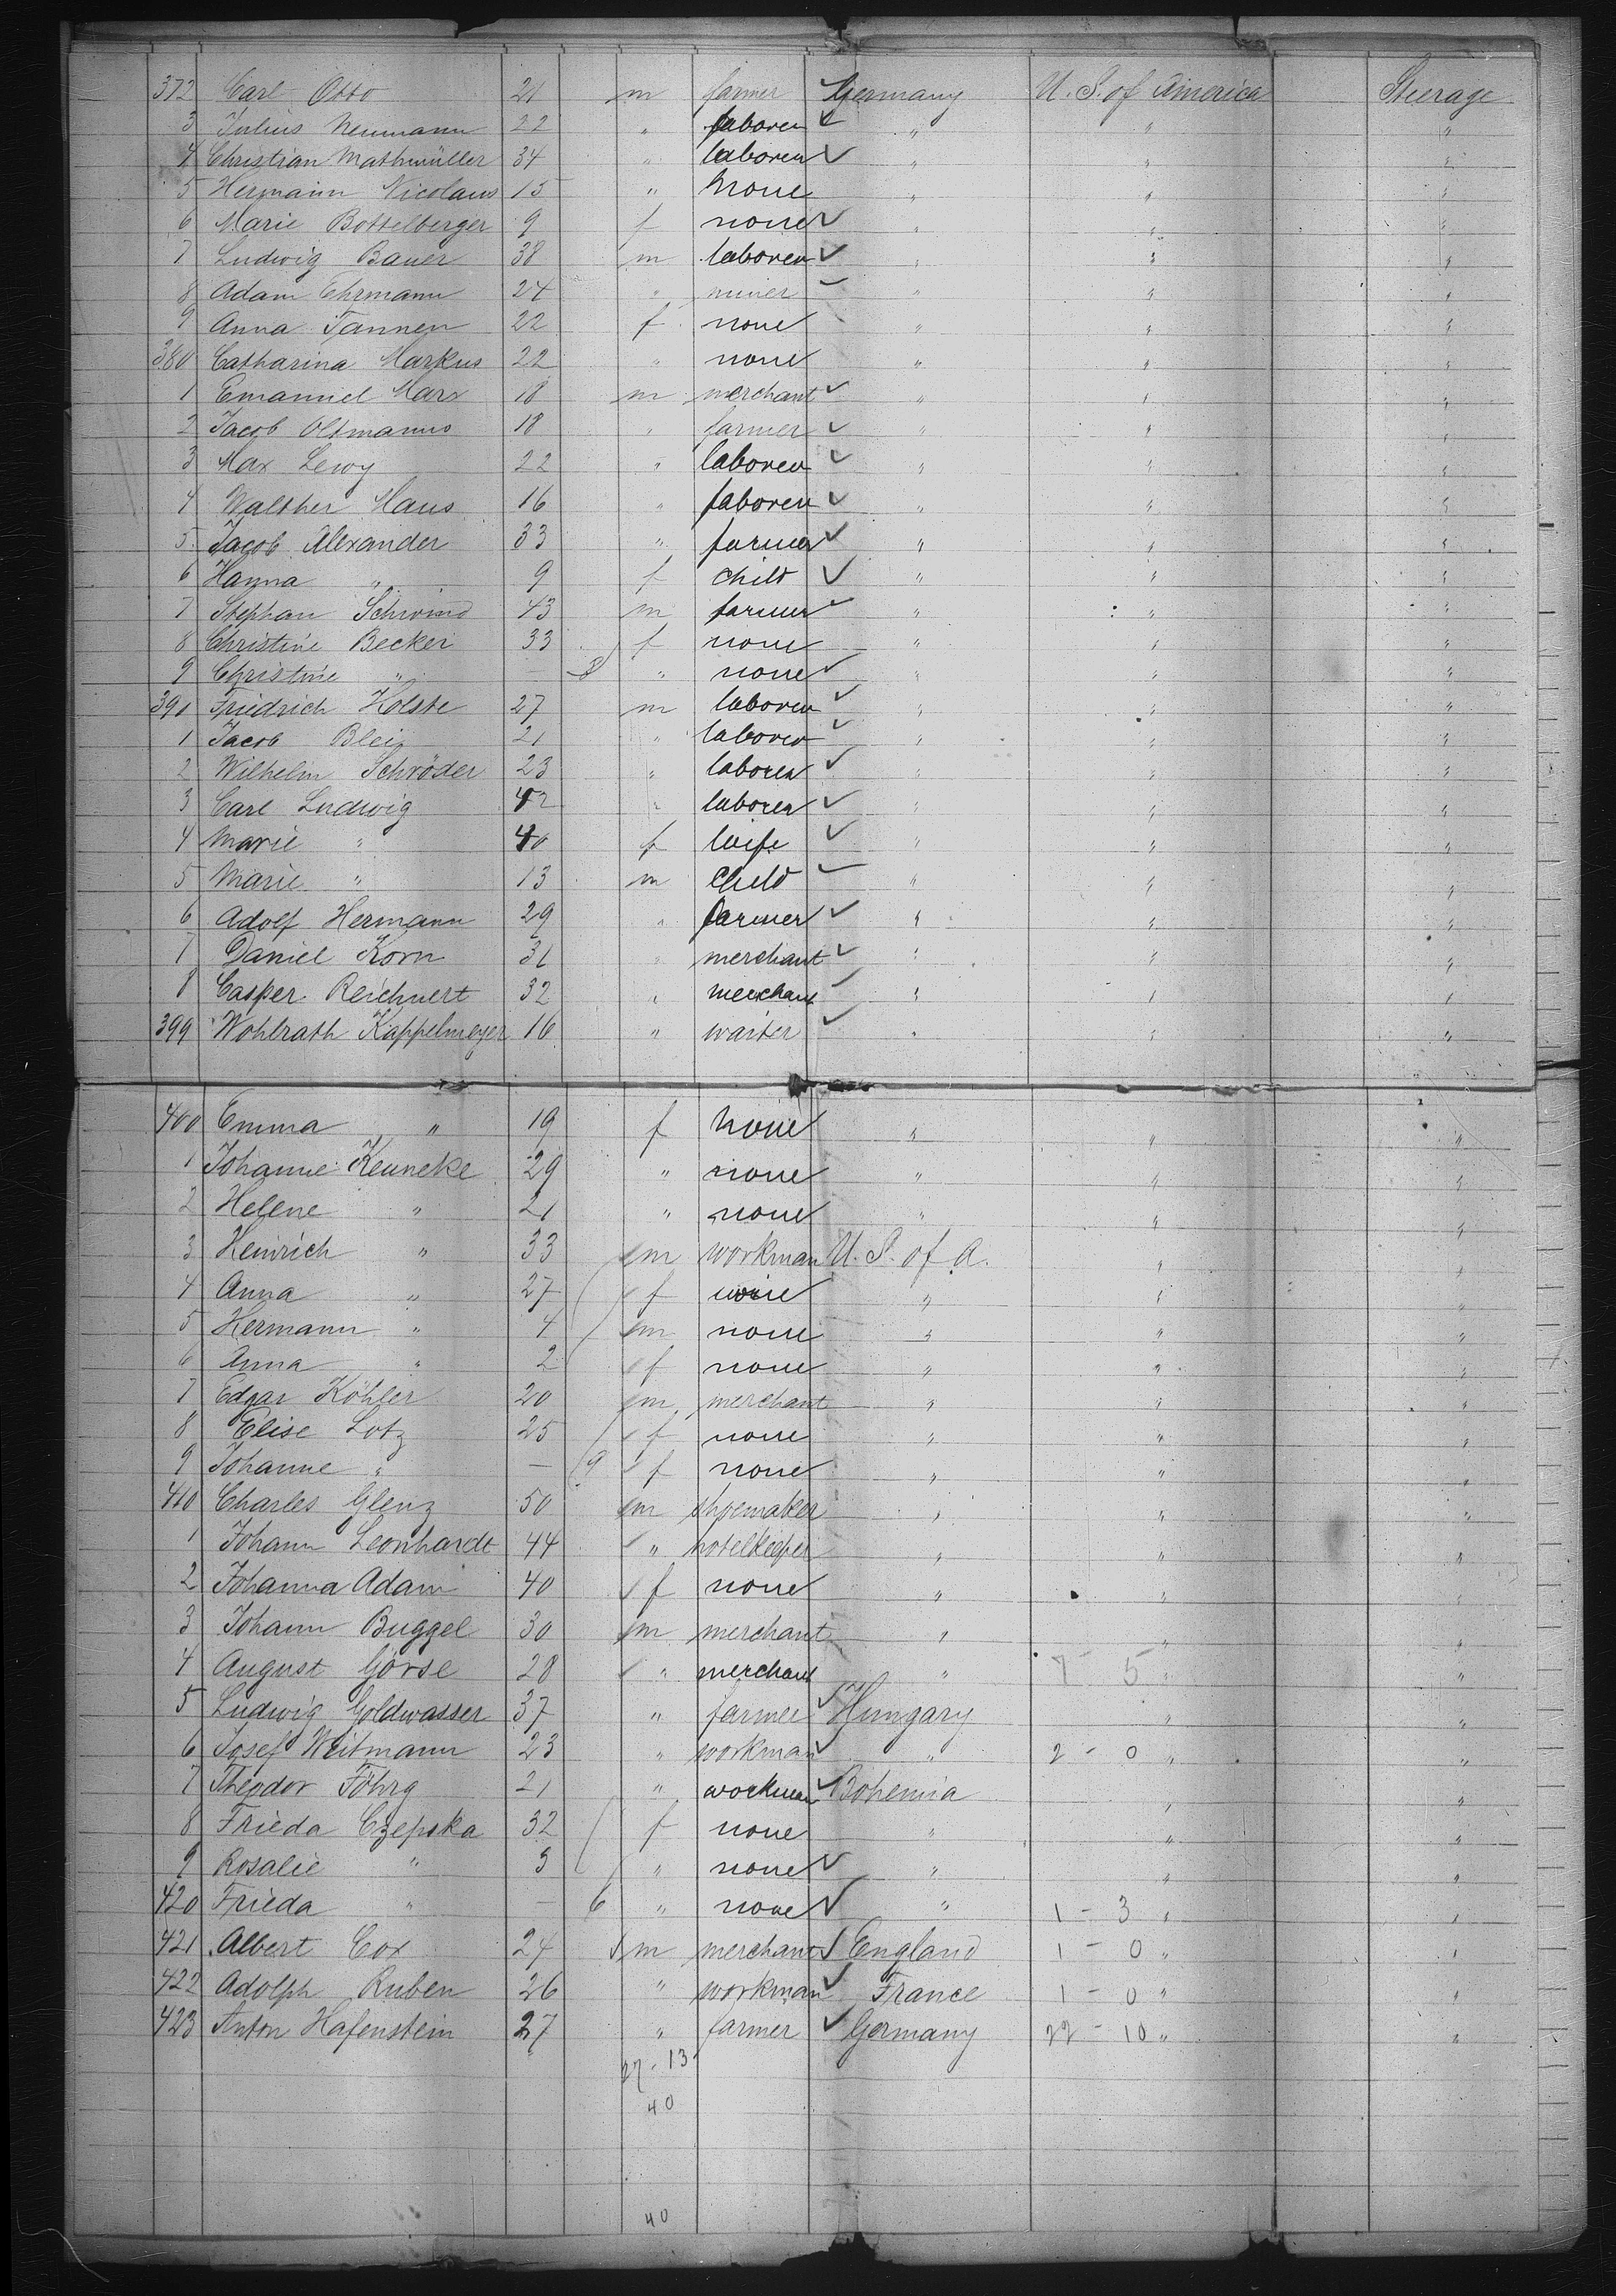 372 Carl Otto 21 m farmer Germany U. S. of America Steerage
3 Julius Neumann 22 " laborer " " "
4 Christian Mathmüller 34 " laborer " " "
5 Hermann Nicolaus 15 " none " " "
6 Marie Bottelberger 9 f none " " "
7 Ludwig Bauer 38 m laborer " " "
8 Adam Ehrmann 24 " miner " " "
9 Anna Tannen 22 f none " " "
380 Catharina Markus 22 " none " " "
1 Emanuel Marx 18 m merchant " " "
2 Jacob Oltmanns 18 " farmer " " "
3 Max Lewy 22 " laborer " " "
4 Walther Haus 16 " laborer " " "
5 Jacob Alexander 33 " farmer " " "
6 Hanna " 9 f child " " "
7 Stephan Schwind 43 m farmer " " "
8 Christine Becker 33 f none " " "
9 Christine " — 8 " none " " "
390 Friedrich Holste 27 m laborer " " "
1 Jacob Blei 21 " laborer " " "
2 Wilhelm Schröder 23 " laborer " " "
3 Carl Ludwig 42 " laborer " " "
4 Marie " 40 f wife " " "
5 Marie " 13 m child " " "
6 Adolf Hermann 29 " farmer " " "
7 Daniel Korn 31 " merchant " " "
8 Casper Reichnert 32 " merchant " " "
399 Wohlrath Kappelmeyer 16 " waiter " " "
400 Emma " 19 f none " " "
1 Johanne Keuneke 29 " none " " "
2 Helene " 21 " none " " "
3 Heinrich " 33 m workman U. S. of A. " "
4 Anna " 27 f " " "
5 Hermann " 4 m none " " "
6 Anna " 2 f none " " "
7 Edgar Köhler 20 m merchant " " "
8 Elise Lotz 25 f none " " "
9 Johanne " — 9 f none " " "
410 Charles Glenz 50 m shoemaker " " "
1 Johann Leonhardt 44 " hotelkeeper " " "
2 Johanna Adam 40 f none " " "
3 Johann Buggel 30 m merchant " " "
4 August Görse 28 " merchant " 7 - 5 " "
5 Ludwig Goldwasser 37 " farmer Hungary " "
6 Josef Weitmann 23 " workman " 2 - 0 " "
7 Theodor Föhrg 21 " workman Bohemia " "
8 Frieda Czepska 32 f none " " "
9 Rosalie " 3 " none " " "
420 Frieda " — 6 " none " 1 - 3 " "
421 Albert Cox 24 m merchant England 1 - 0 " "
422 Adolph Ruben 26 " workman France 1 - 0 " "
423 Anton Hafenstein 27 " farmer Germany 22 - 10 " "
27 - 13
40
40